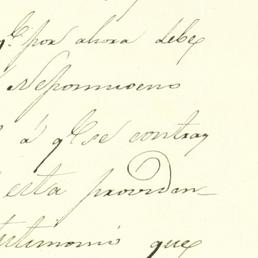 q.e por ahora debe
Nepomuceno
á q.e se contray
esta providen-
testimonio que